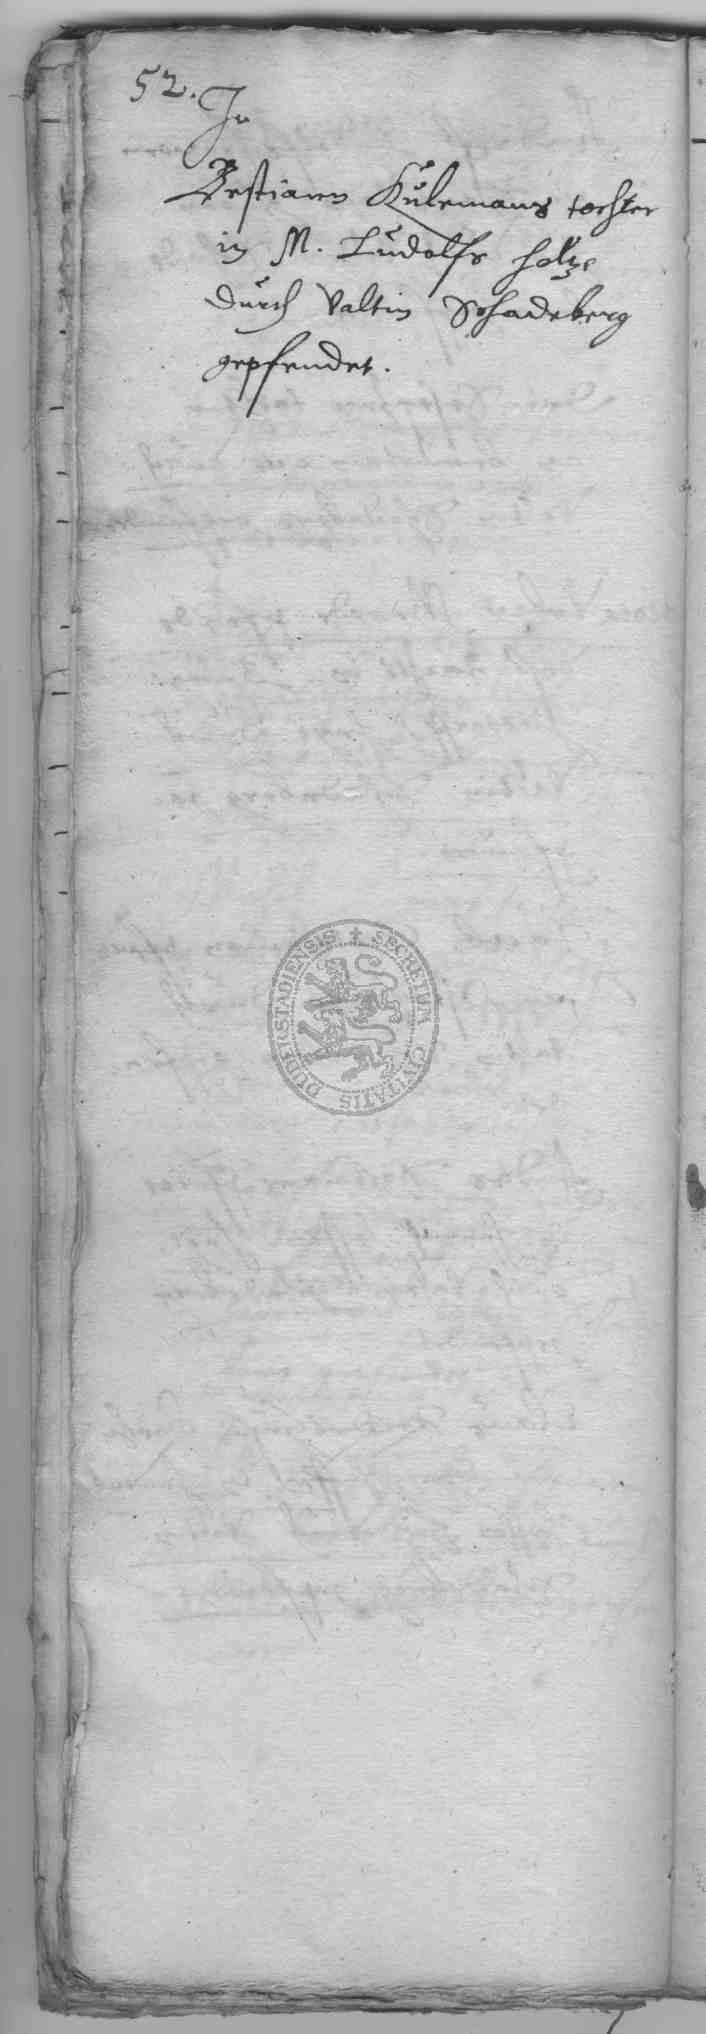 52.
Jn
Bestiann Külemans tochter
in M. Ludolfs holtze
durch Valtin Schadeberg
gepfendet.
SECRETUM CIVITATIS DUDERSTADIENSIS